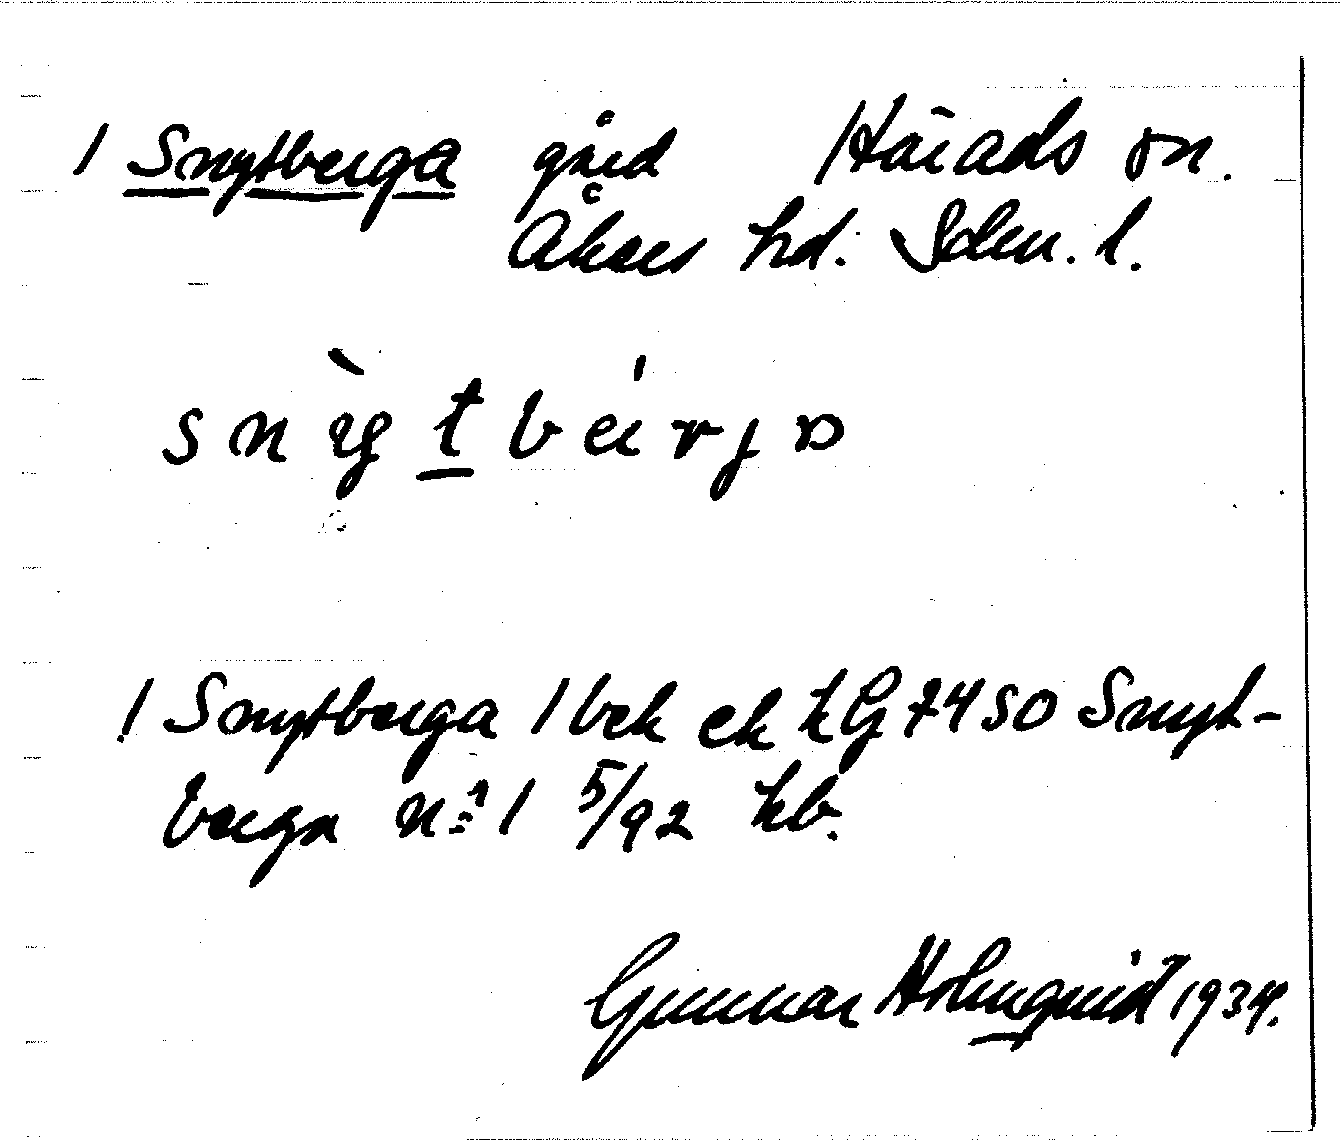 1 Snytberga gård Härads sn.
Åkers hd. Sdm. l.
snỳtbærja
1 Snytberga 1 bek ek kG 7450 Snyt-
berga nº 1 5/92 hb.
Gunnar Holmquist 1934.